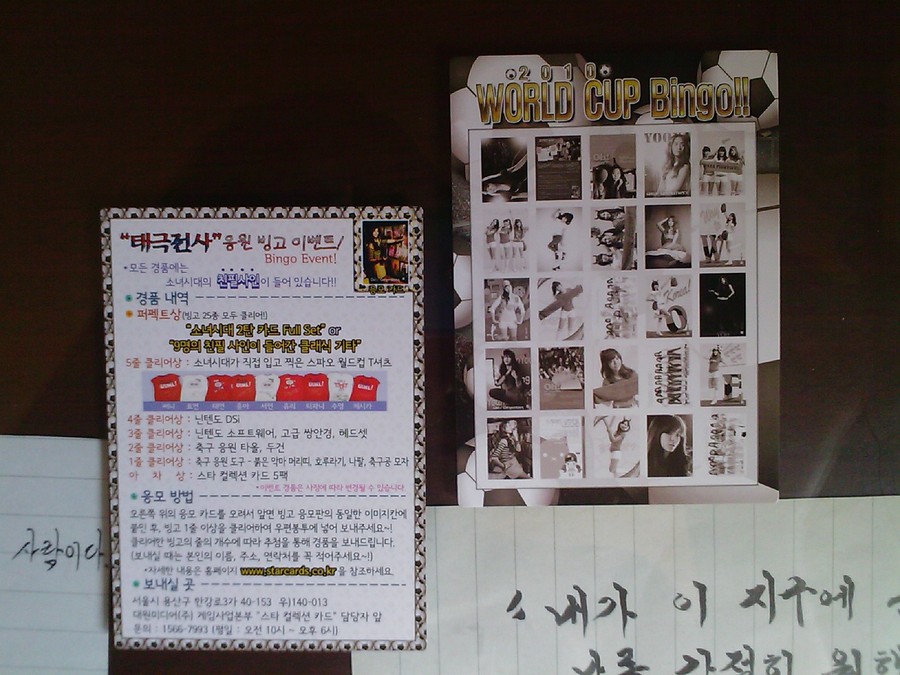 "태극전사" 응원 빙고 이벤트!
Bingo Event!
*모든 경품에는
소녀시대의 친필사인이 들어 있습니다!!
응모 카드
경품 내역
퍼펙트상(빙고 25종 모두 클리어!)
"소녀시대 2탄 카드 Full Set" or
"9명의 친필 사인이 들어간 클래식 기타"
5줄 클리어상 : 소녀시대가 직접 입고 찍은 스파오 월드컵 T셔츠
써니 효연 태연 윤아 서현 유리 티파니 수영 제시카
4줄 클리어상 : 닌텐도 DSi
3줄 클리어상 : 닌텐도 소프트웨어, 고급 쌍안경, 헤드셋
2줄 클리어상 : 축구 응원 타올, 두건
1줄 클리어상 : 축구 응원 도구 - 붉은 악마 머리띠, 호루라기, 나팔, 축구공 모자
아 차 상 : 스타 컬렉션 카드 5팩
*이벤트 경품은 사정에 따라 변경될 수 있습니다
응모 방법
오른쪽 위의 응모 카드를 오려서 앞면 빙고 응모판의 동일한 이미지칸에
붙인 후, 빙고 1줄 이상을 클리어하여 우편봉투에 넣어 보내주세요~!
클리어한 빙고의 줄의 개수에 따라 추첨을 통해 경품을 보내드립니다.
(보내실 때는 본인의 이름, 주소, 연락처를 꼭 적어주세요~!)
*자세한 내용은 홈페이지 www.starcards.co.kr을 참조하세요.
보내실 곳
서울시 용산구 한강로3가 40-153 우)140-013
대원미디어(주) 게임사업본부 "스타 컬렉션 카드" 담당자 앞
문의 : 1566-7993 (평일 : 오전 10시 ~ 오후 6시)
2010
WORLD CUP Bingo!!
사람이다
내가 이 지구에